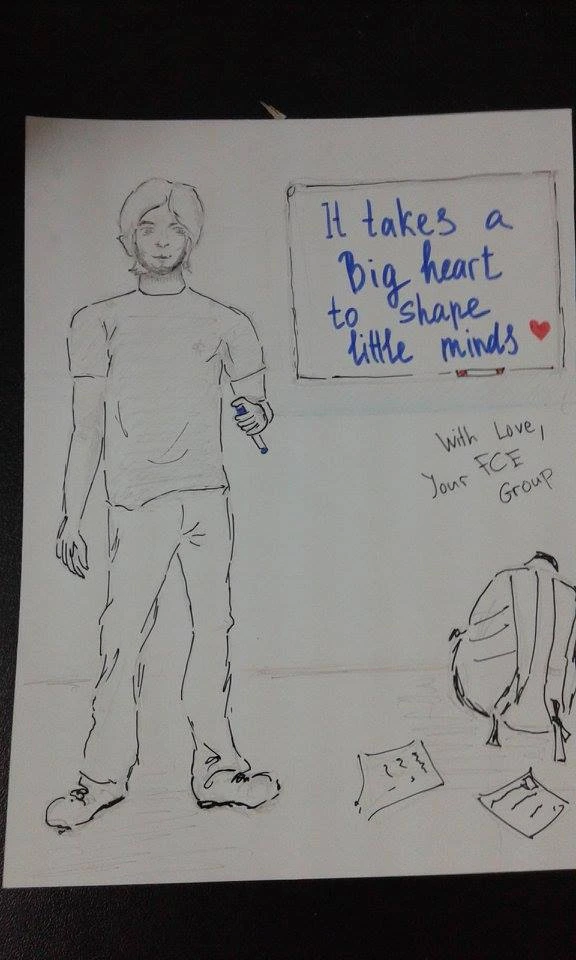 It takes a
Big heart
to shape
little minds
With Love,
Your FCE
Group